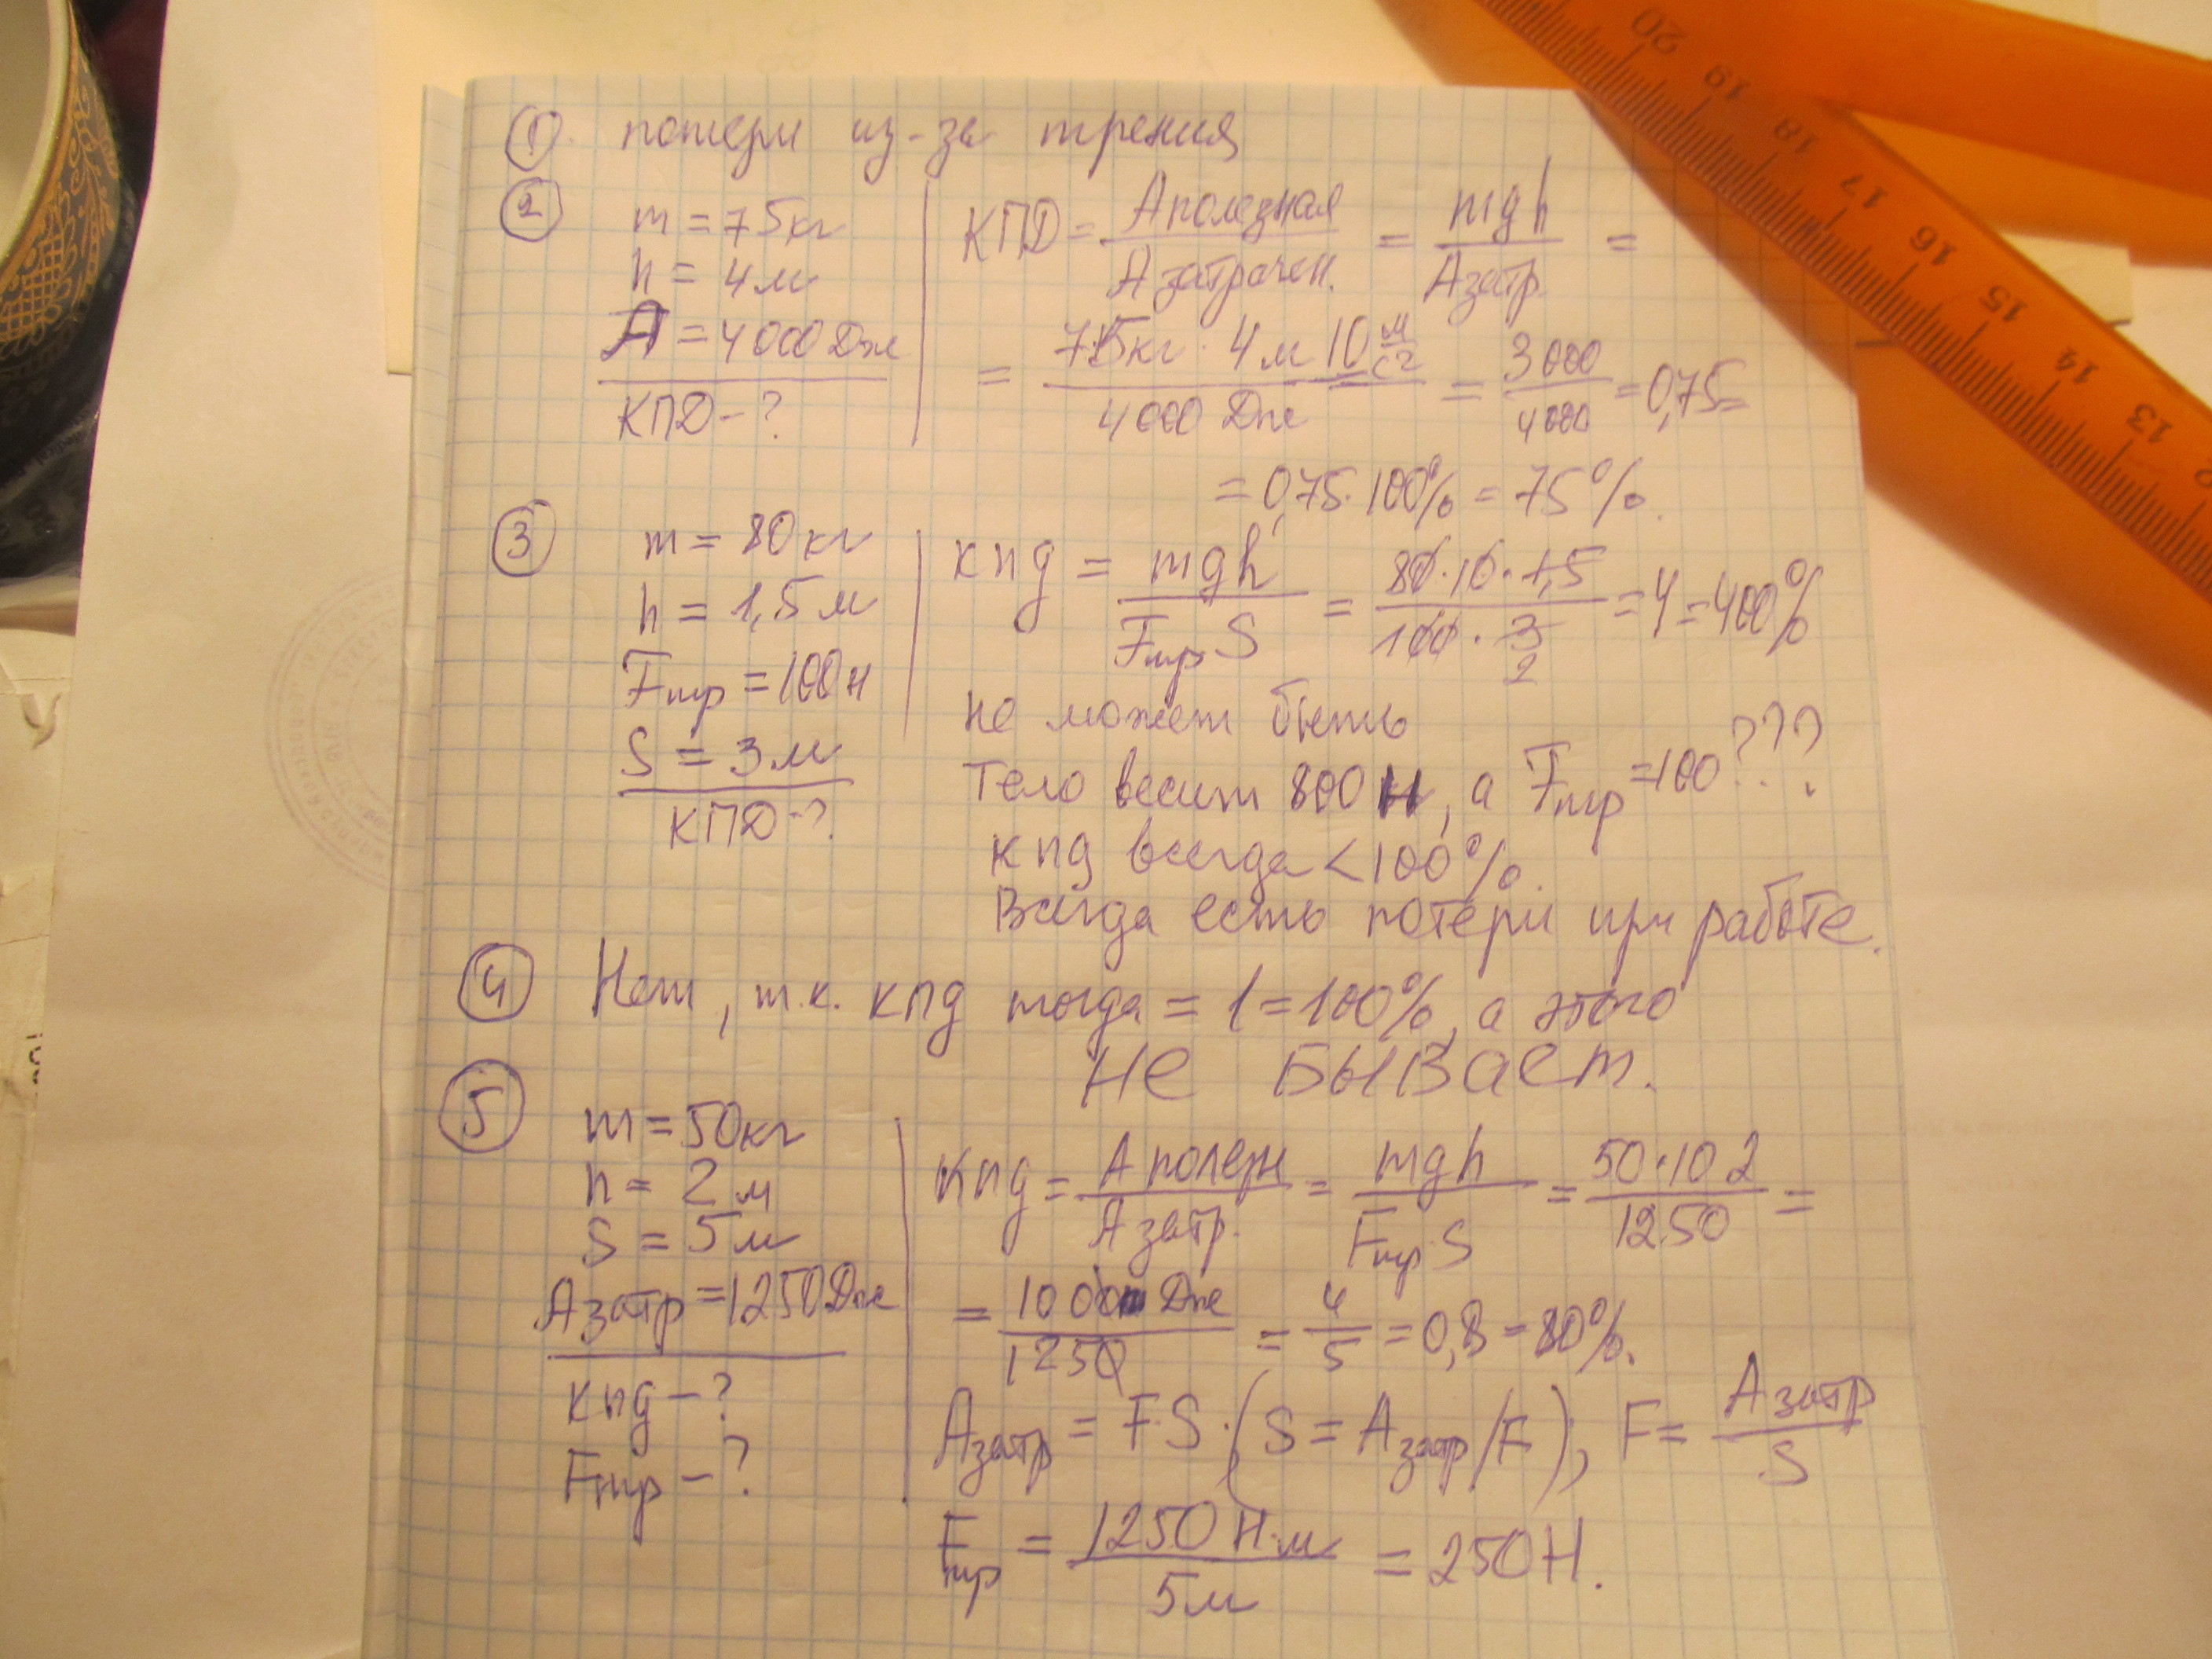 ① потери из-за трения
② m = 75кг
h = 4м
A = 4000Дж
КПД - ?
КПД = Aполезная / Aзатрачен. = mgh / Aзатр. =
= 75кг · 4м 10 м/с2 / 4000 Дж = 3000 / 4000 = 0,75 =
= 0,75 · 100% = 75%.
③ m = 80кг
h = 1,5м
Fтр = 100н
S = 3м
КПД - ?
кпд = mgh / Fтр S = 80·10·1,5 / 100·3 = 4 = 400%
2
не может быть
Тело весит 800Н, а Fтр = 100???
кпд всегда < 100%.
Всегда есть потери при работе.
④ Нет, т.к. кпд тогда = 1 = 100%, а этого
Не БЫВает.
⑤ m = 50кг
h = 2м
S = 5м
Aзатр = 1250Дж
кпд - ?
Fтр - ?
кпд = A полезн / A затр. = mgh / Fтр·S = 50·10 2 / 1250 =
= 1000 Дж / 1250 = 4 / 5 = 0,8 = 80%.
Aзатр = F·S·(S = Aзатр/F), F = Aзатр / S
Fтр = 1250 Н·м / 5м = 250Н.
20 19 18 17 16 15 14 13